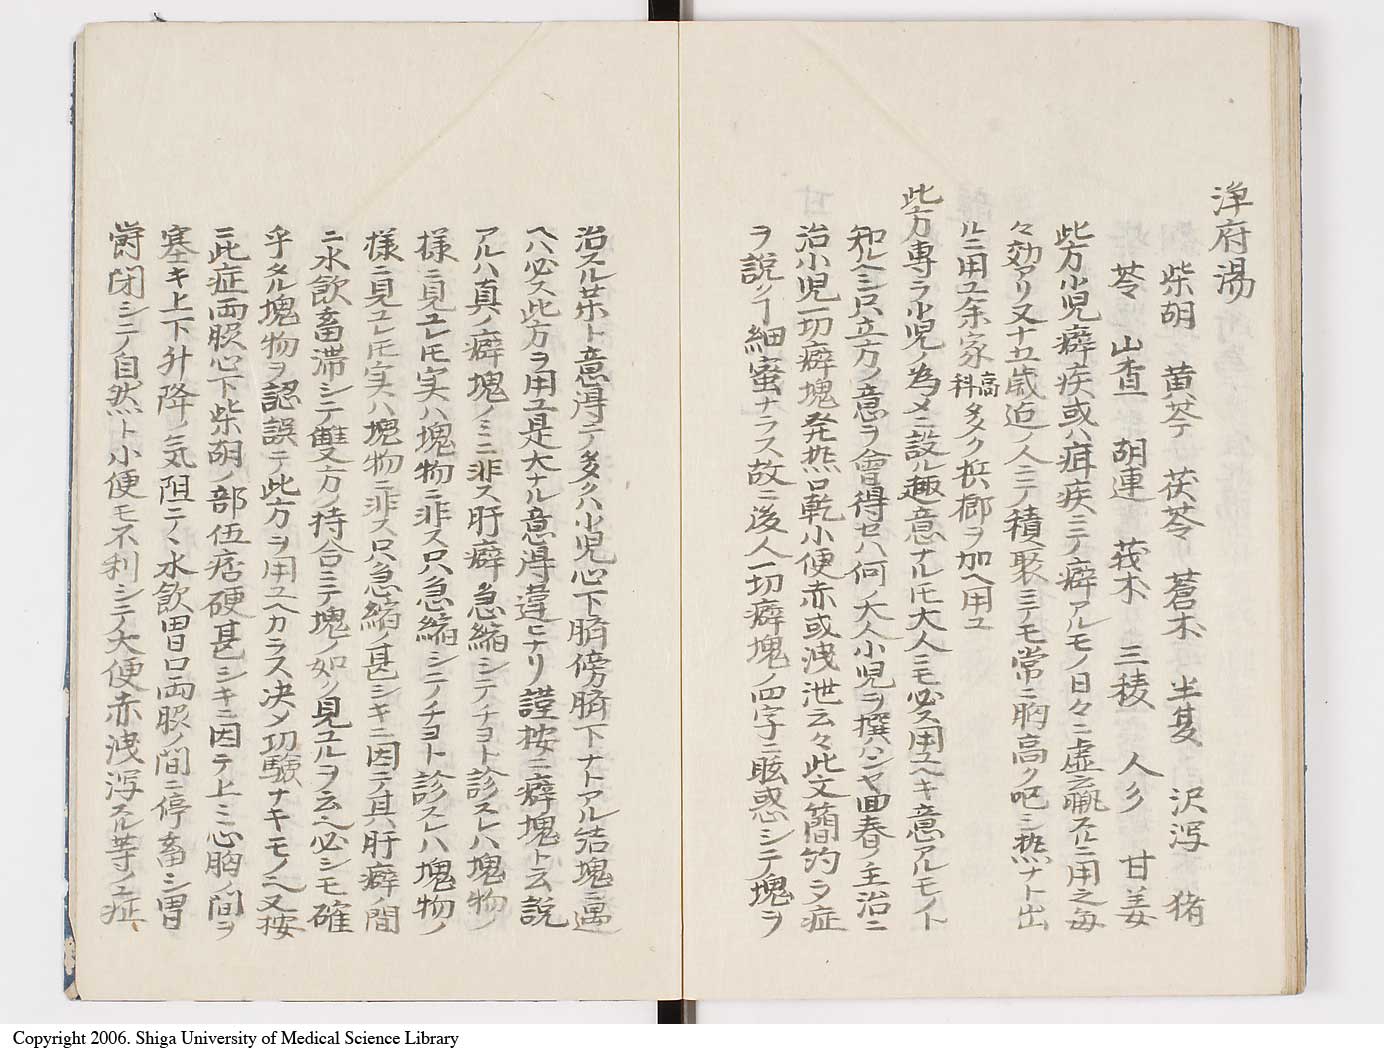 淨府湯
柴胡 黄芩 茯苓 蒼朮 半夏 沢瀉 猪
苓 山査 胡連 莪朮 三稜 人参 甘姜
此方小児癖疾或ハ疳疾ニテ癖アルモノ日々ニ虚羸スルニ用之毎
々効アリ又十五歳迫ノ人ニテ積聚ニテモ常ニ胸高ク吧ニ熱ナト出
ルニ用ユ余家 高科 多ク兵榔ヲ加ヘ用ユ
此方専ラ小児ノ為メニ設ル趣意ナルヒ大人ニモ必ス用ユヘキ意アルモノト
知ルヘシ只立方ノ意ヲ會得セハ何ノ大人小児ヲ撰ハンヤ回春ノ主治ニ
治小児一切癖塊発熱口乾小便赤或洩泄云々此文簡約ラ症
ヲ説ク丁細蜜ナラス故ニ後人一切癖塊ノ四字ニ眩惑シテ塊ヲ
治スル藥ト意得テ多クハ小児心下臍傍臍下ナトアル結塊ニ遇
ヘハ必ス此方ヲ用ユ是大ナル意得違ヒナリ謹按ニ癖塊ト云説
アルハ真ノ癖塊ノミニ非ス肝癖急縮シテチヨト診スレハ塊物ノ
様ニ見ユレヒ実ハ塊物ニ非ス只急縮シテチヨト診スレハ塊物ノ
様ニ見ユレヒ実ハ塊物ニ非ス只急縮ノ甚シキニ因テ其肝癖ノ間
ニ水飲畜滞シテ雙方ノ持合ニテ塊ノ如ク見ユルヲ云ヘ必シモ確
乎タル塊物ヲ認誤テ此方ヲ用ユヘカラス决メ功験ナキモノヘ又按
ニ此症両脇心下柴胡ノ部伍痞硬甚シキニ因テ上ミ心胸ノ間ヲ
塞キ上下升降ノ気阻テヽ水飲胃口両脇ノ間ニ停畜シ胃
欝閉シテ自然ト小便モ不利シテ大便赤洩瀉スル等ノユ症
Copyright 2006. Shiga University of Medical Science Library